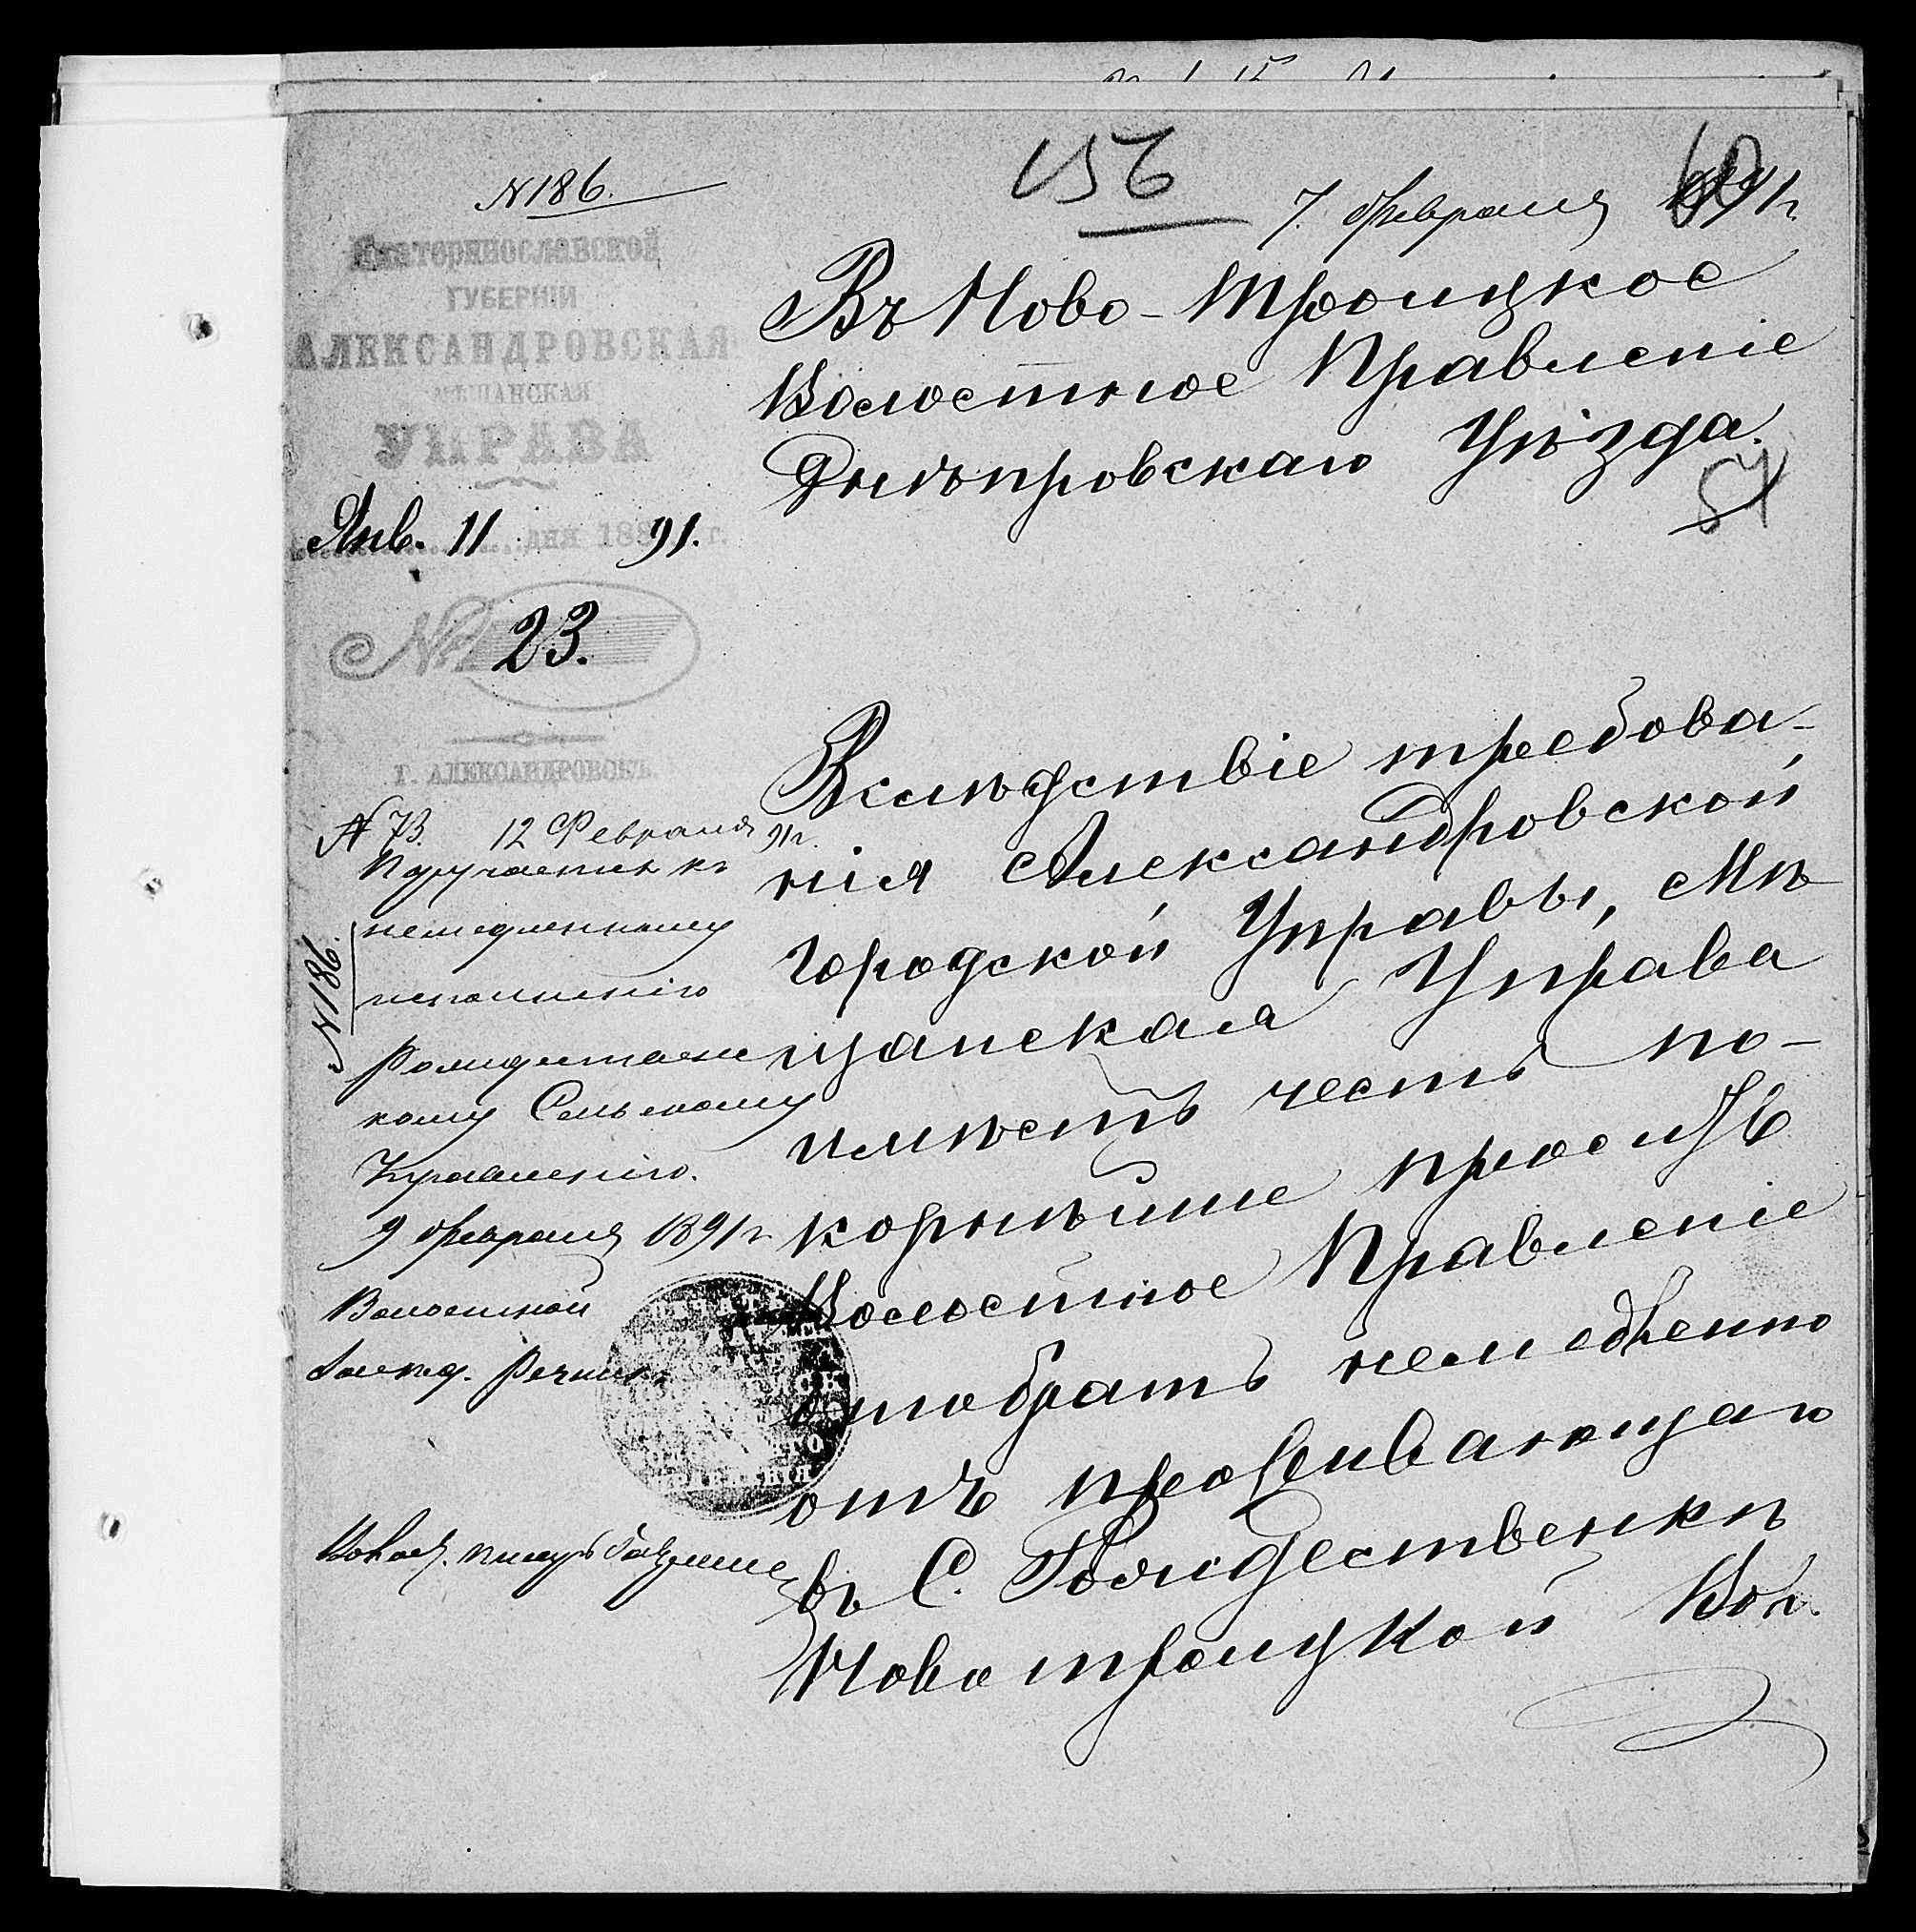 № 186.
156
60
7. Февраля 1891 г.
Екатеринославской
ГУБЕРНІИ
АЛЕКСАНДРОВСКАЯ
МѢЩАНСКАЯ
УПРАВА
Янв. 11 дня 188 91. г.
№ 23.
г. АЛЕКСАНДРОВСКЪ.
Въ Ново-Троицкое
Волостное Правленіе
Днѣпровскаго Уѣзда.
54
Вслѣдствіе требова-
нія Александровской
городской Управы, Мѣ-
щанская Управа
имѣетъ честь по-
корнѣйше проситъ
Волостное Правленіе
отобрать немедленно
отъ проживающаго
въ С. Рождественкѣ
Новотроицкой Вол.
№ 73. 12 Февраля 91 г.
Поручается къ
немедленному
исполненію
Рождественс
кому Сельскому
Управленію.
9 Февраля 1891 г.
Волостной
№ 186.